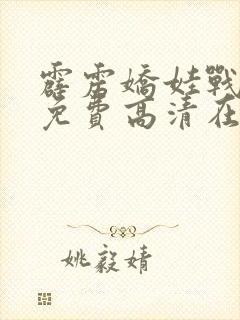 霹雳嬌娃戰
免費高清在
姚毅婧